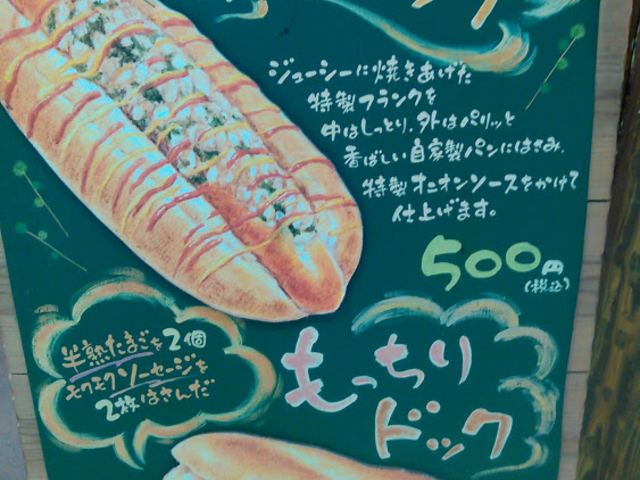 ジューシーに焼きあげた
特製フランクを
中はしっとり、外はパリッと
香ばしい自家製パンにはさみ、
特製オニオンソースをかけて
仕上げます。
500円
(税込)
半熟たまごを2個
モクモクソーセージを
2枚はさんだ
もっちり
ドック